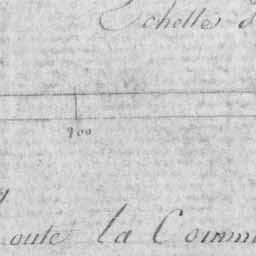 Echelle
100
toute la Comm